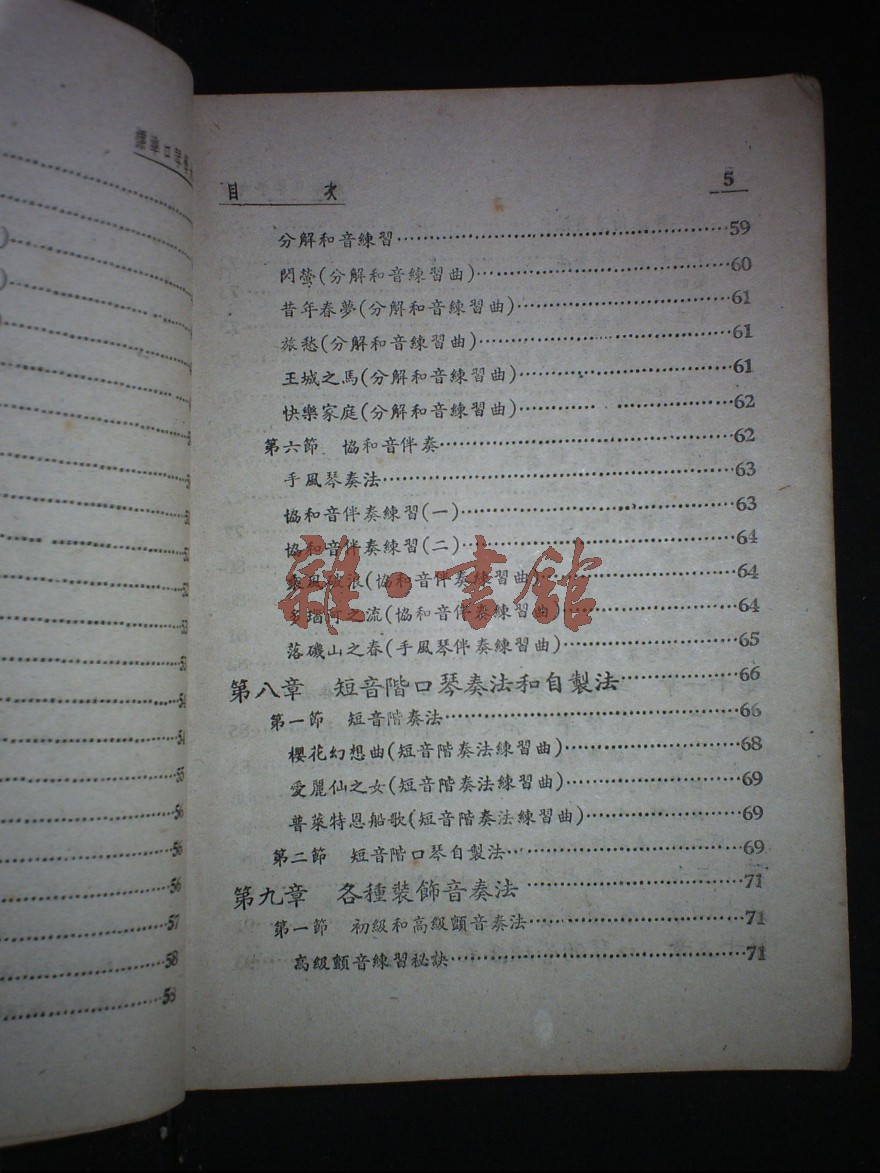 標準口琴學
52
53
53
54
54
55
56
56
56
57
58
58
目 次 5
分解和音練習 59
閃螢(分解和音練習曲) 60
昔年春夢(分解和音練習曲) 61
旅愁(分解和音練習曲) 61
王城之馬(分解和音練習曲) 61
快樂家庭(分解和音練習曲) 62
第六節 協和音伴奏 62
手風琴奏法 63
協和音伴奏練習(一) 63
協和音伴奏練習(二) 64
乘風破浪(協和音伴奏練習曲) 64
多瑙河之流(協和音伴奏練習曲) 64
落磯山之春(手風琴伴奏練習曲) 65
第八章 短音階口琴奏法和自製法 66
第一節 短音階奏法 66
櫻花幻想曲(短音階奏法練習曲) 68
愛麗仙之女(短音階奏法練習曲) 69
普萊特恩船歌(短音階奏法練習曲) 69
第二節 短音階口琴自製法 69
第九章 各種裝飾音奏法 71
第一節 初級和高級顫音奏法 71
高級顫音練習祕訣 71
雜·書館